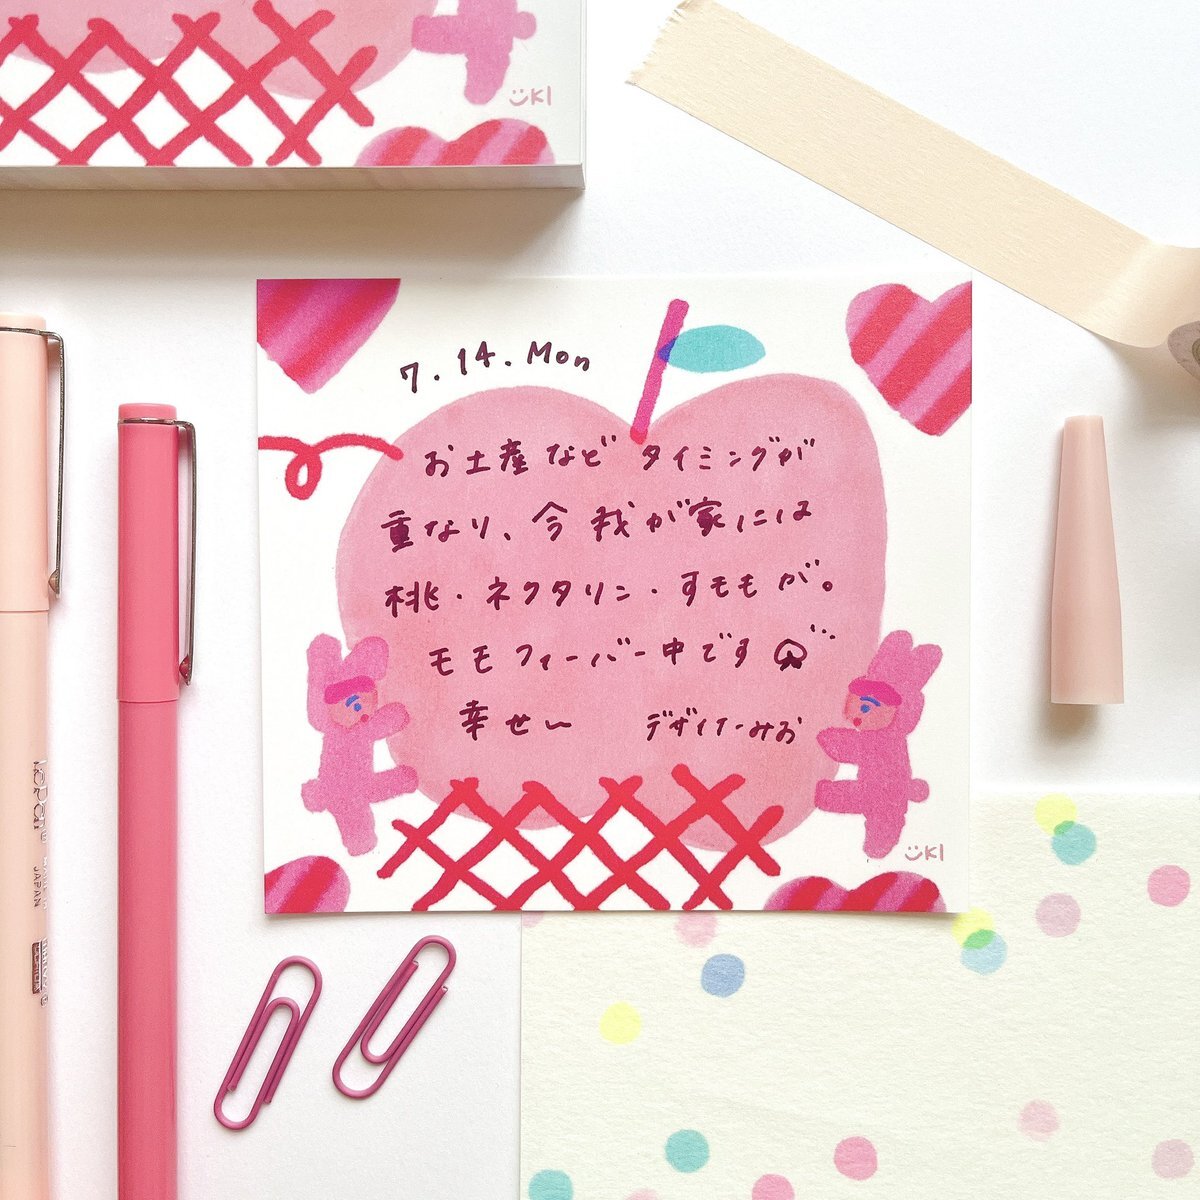 üKI
7.14.Mon
お土産など タイミングが
重なり、今 我が家には
桃・ネクタリン・すモモが。
モモフィーバー中です
幸せ〜 デザイナーみお
üKI
LePen
JAPAN